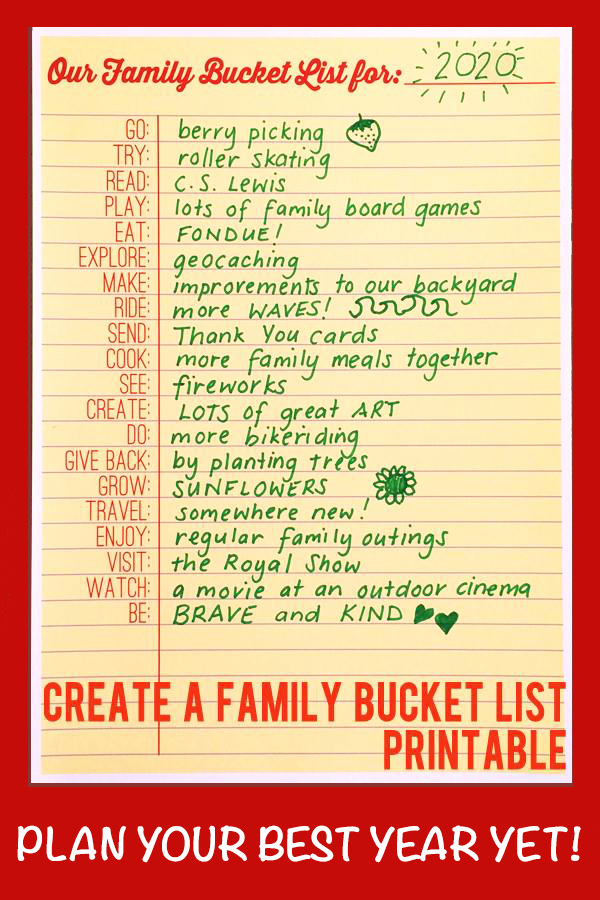 Our Family Bucket List for: 2020
GO: berry picking
TRY: roller skating
READ: C.S. Lewis
PLAY: lots of family board games
EAT: FONDUE!
EXPLORE: geocaching
MAKE: improvements to our backyard
RIDE: more WAVES!
SEND: Thank You cards
COOK: more family meals together
SEE: fireworks
CREATE: LOTS of great ART
DO: more bikeriding
GIVE BACK: by planting trees
GROW: SUNFLOWERS
TRAVEL: somewhere new!
ENJOY: regular family outings
VISIT: the Royal Show
WATCH: a movie at an outdoor cinema
BE: BRAVE and KIND
CREATE A FAMILY BUCKET LIST
PRINTABLE
PLAN YOUR BEST YEAR YET!